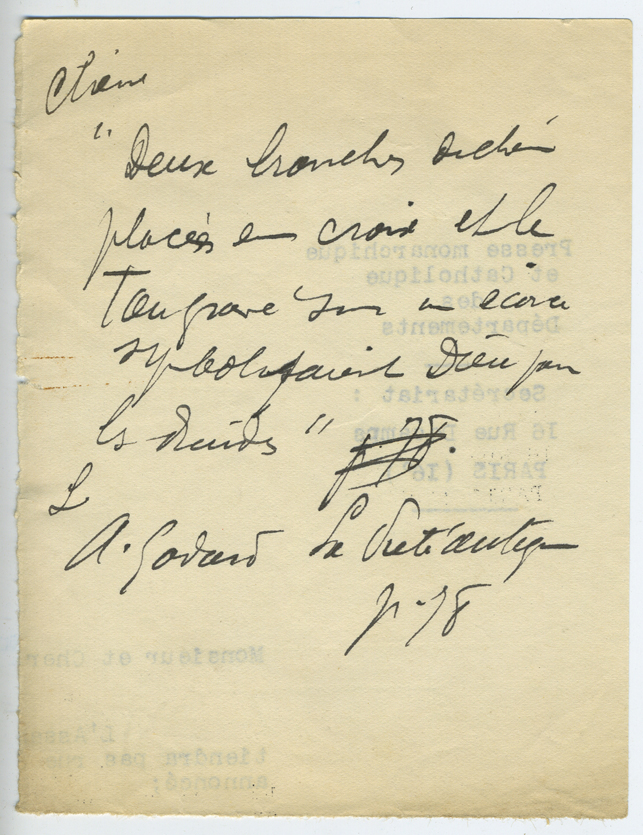 Chêne
"Deux branches de chêne
placées en croix et le
Tau gravé sur un écorce
symbolisaient Dieu par
les druides" p 78.
A. Godard La Piété antique
p. 78
Presse monarchique
et Catholique
des
Départements
Secrétariat :
16 Rue
PARIS (16
Monsieur et Cher
L'Ass
tiendra pas
annoncé;